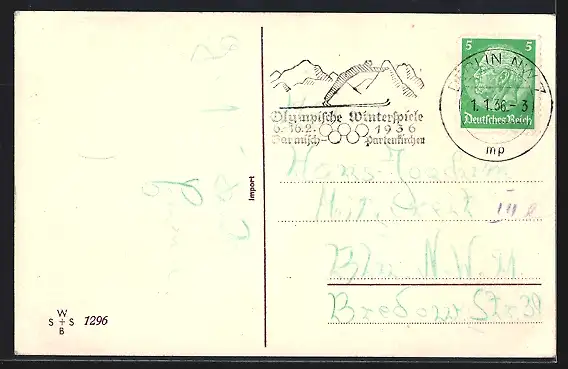 5 5
BERLIN NW 7
1.1.36.-3
mp
Deutsches Reich
Olympische Winterspiele
6.-16.2. 1936
Garmisch-Partenkirchen
Import
Hans-Joachim
III
Bln N.W. 21
Bredow Str 39
W
S + S 1296
B